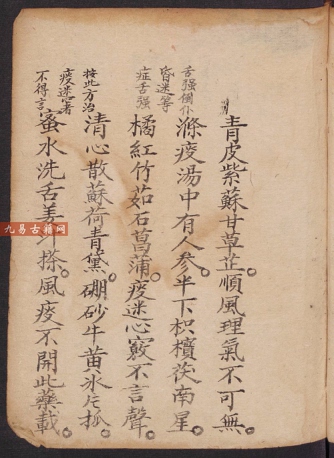 青皮紫蘇甘草芷順風理氣不可無
滌痰湯中有人參半下枳檳茯南星
舌强
昏迷等
症舌强
橘紅竹茹石菖蒲痰迷心竅不言聲
按此方治
清心散蘇荷青黛硼砂牛黄氷片
痰迷
不得言
蜜水洗舌姜汁搽風痰不開此藥載
九易古籍网